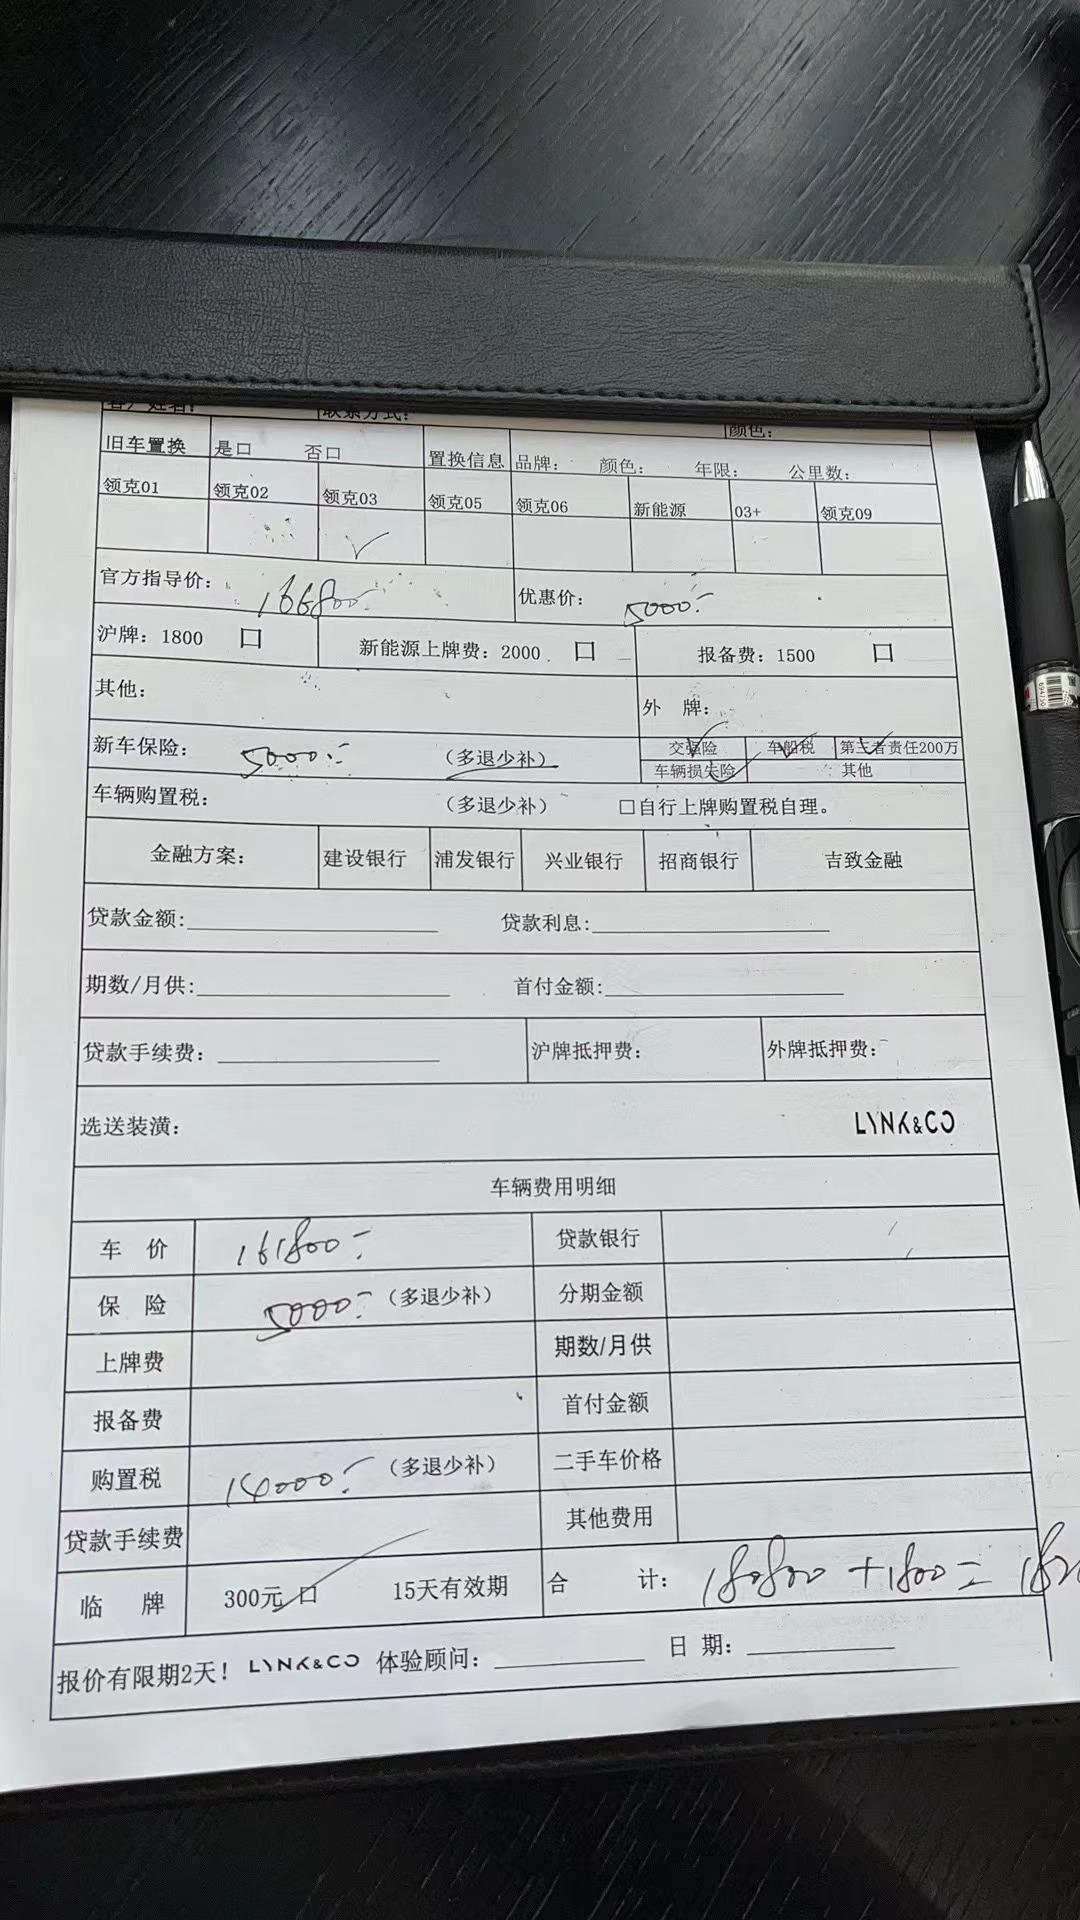 客户姓名: 联系方式: 颜色:
旧车置换 是口 否口 置换信息 品牌: 颜色: 年限: 公里数:
领克01 领克02 领克03 领克05 领克06 新能源 03+ 领克09
官方指导价: 166800 优惠价: 5000
沪牌: 1800 口 新能源上牌费: 2000 口 报备费: 1500 口
其他: 外 牌:
新车保险: 5000 (多退少补) 交强险 车船税 第三者责任200万
车辆损失险 其他
车辆购置税: (多退少补) 口自行上牌购置税自理。
金融方案: 建设银行 浦发银行 兴业银行 招商银行 吉致金融
贷款金额: 贷款利息:
期数/月供: 首付金额:
贷款手续费: 沪牌抵押费: 外牌抵押费:
选送装潢: LYNK&CO
车辆费用明细
车 价 161800 贷款银行
保 险 5000 (多退少补) 分期金额
上牌费 期数/月供
报备费 首付金额
购置税 14000 (多退少补) 二手车价格
贷款手续费 其他费用
临 牌 300元 口 15天有效期 合 计: 180800+1800=182
报价有限期2天! LYNK&CO 体验顾问: 日 期: